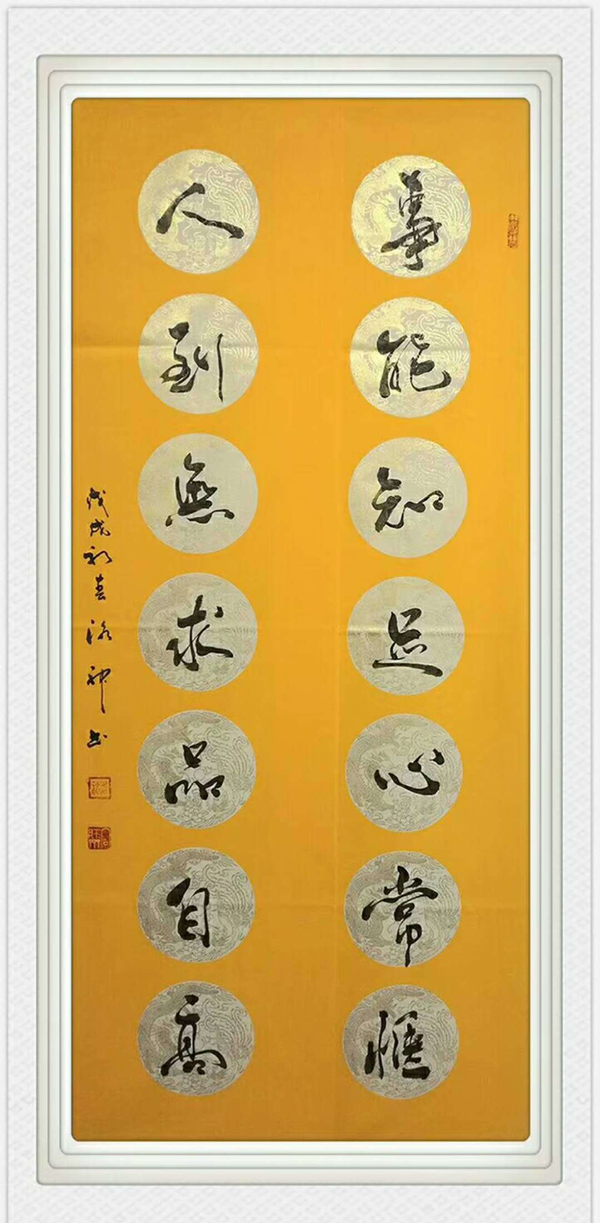 事能知足心常愜
人到無求品自高
戊戌初春洛神书